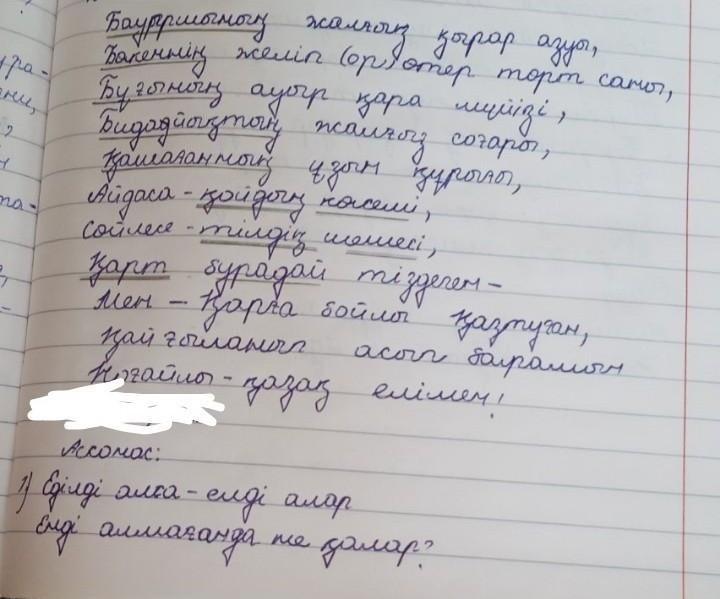 Бауыршының жалғың қырар азуы,
Бәкеннің желіп (ор) өтер төрт саны,
Бұғының ауыр қара мүйізі,
Бидайықтың жалғыз соғары,
Қашағанның ұзын құрығы,
Айдаса - қойдың көсемі,
Сөйлесе - тілдің шешесі,
Қарт бурадай тіздеген -
Мен - Қарға бойлы Қазтуған,
Қайғыланып асып барамын
Ноғайлы - қазақ елімен!
Ассонас:
1) Еділді алса - елді алар
Елді алмағанда не қалар?